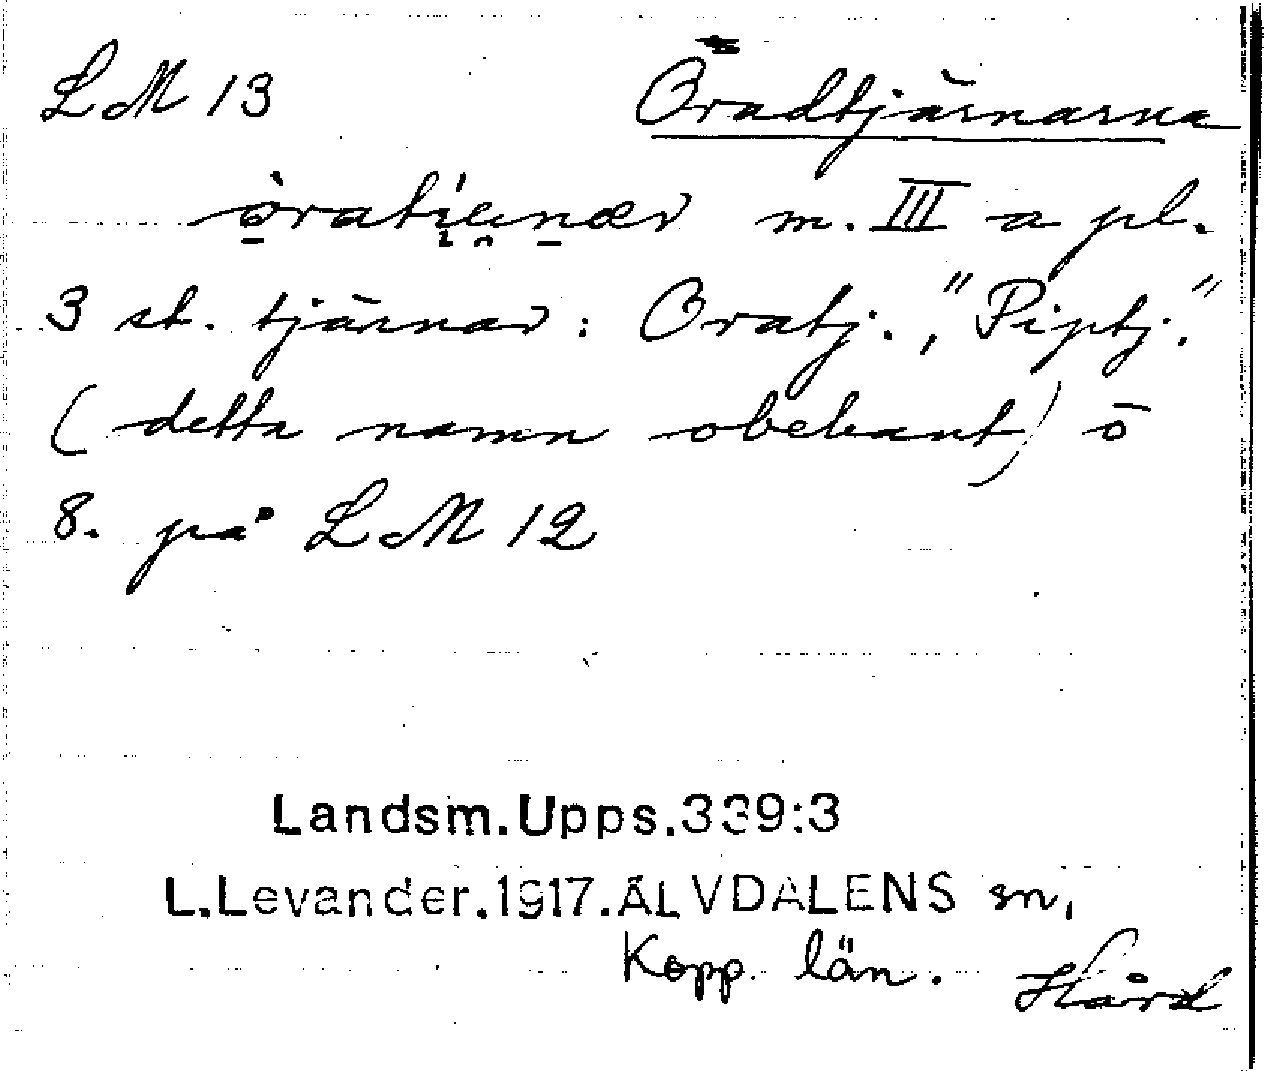 LM 13 Oradtjärnarna
m. III a pl.
3 st. tjärnar: Oratj., "Piptj."
(detta namn obekant) o
8. på LM 12
Landsm.Upps.339:3
L.Levander.1917.ÄLVDALENS sn,
Kopp. län. Hård